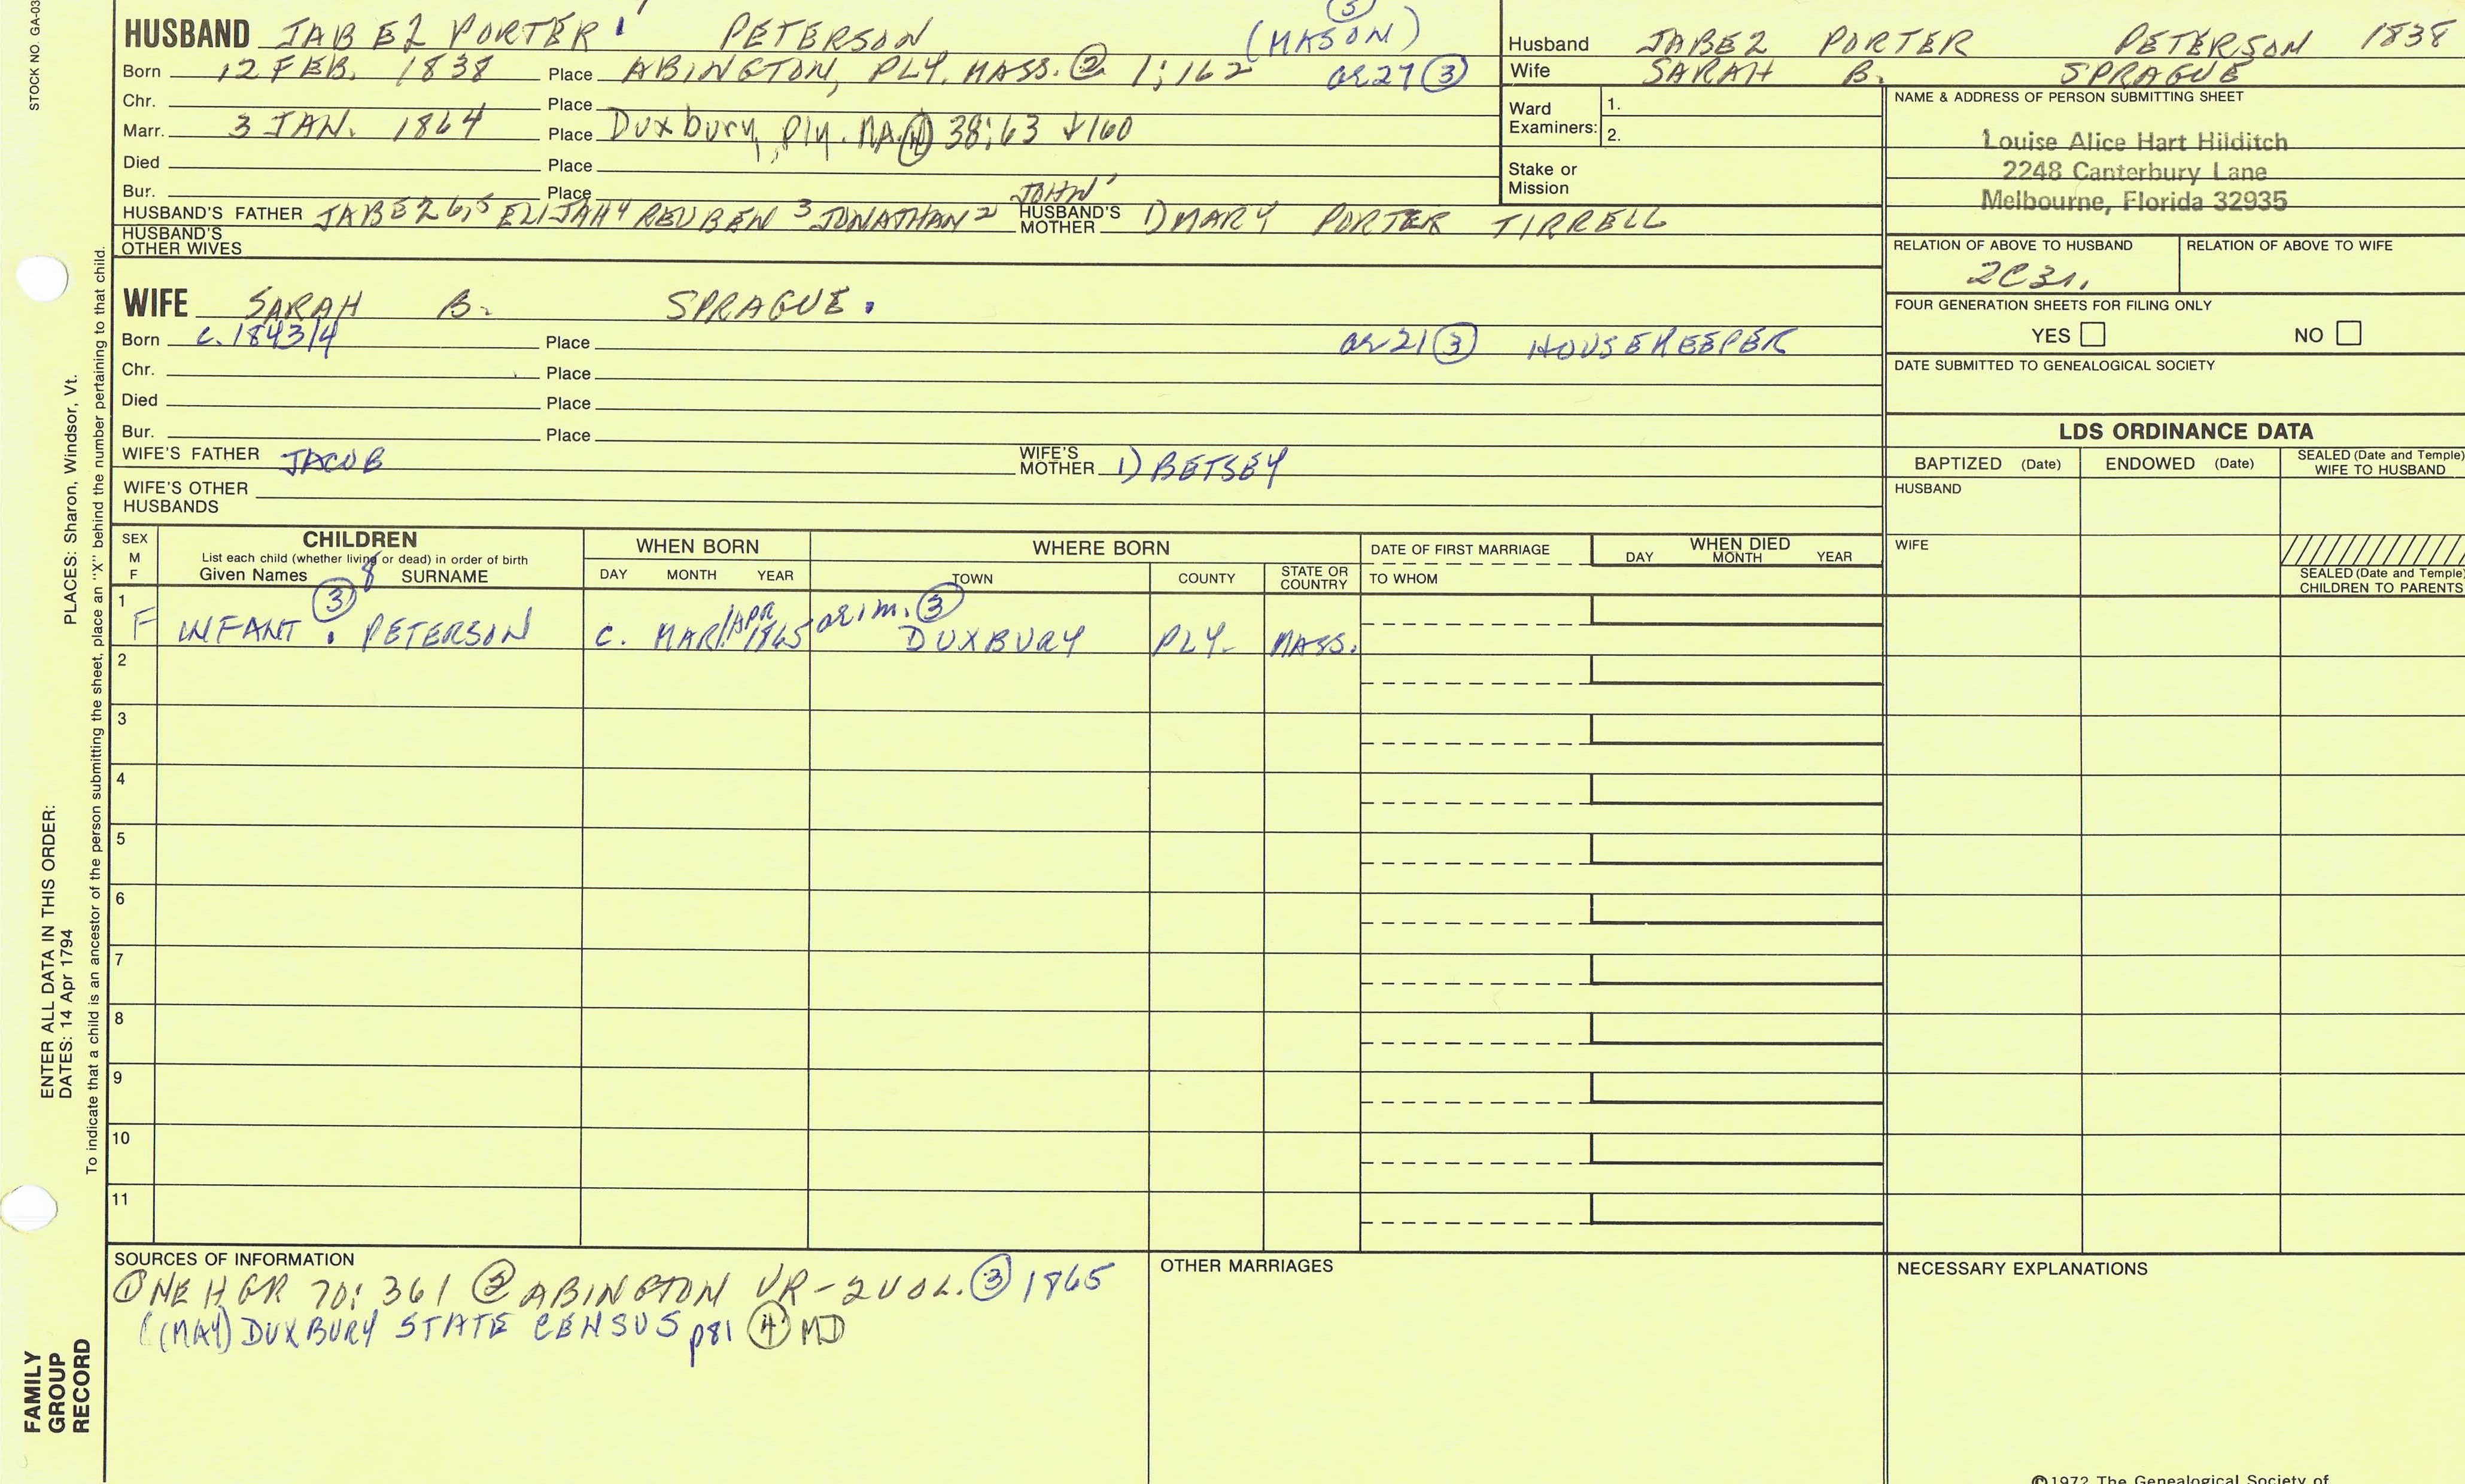 STOCK NO. GA-03
HUSBAND JABEZ PORTER PETERSON (MASON) 3
Born 12 FEB. 1838 Place ABINGTON, PLY. MASS. 2 1:162 ae 27 3
Chr. Place
Marr. 3 JAN. 1864 Place Duxbury, Ply. MA. 4 38:63 + 160
Died Place
Bur. Place
JOHN'
HUSBAND'S FATHER JABEZ 6,5 ELIJAH 4 REUBEN 3 JONATHAN 2 HUSBAND'S MOTHER 1) MARY PORTER TIRRELL
HUSBAND'S OTHER WIVES
WIFE SARAH B. SPRAGUE.
Born c. 1843/4 Place ae 21 3 HOUSEKEEPER
Chr. Place
Died Place
Bur. Place
WIFE'S FATHER JACOB WIFE'S MOTHER 1) BETSEY
WIFE'S OTHER HUSBANDS
Husband JABEZ PORTER PETERSON 1838
Wife SARAH B. SPRAGUE
Ward Examiners: 1.
2.
Stake or Mission
NAME & ADDRESS OF PERSON SUBMITTING SHEET
Louise Alice Hart Hilditch
2248 Canterbury Lane
Melbourne, Florida 32935
RELATION OF ABOVE TO HUSBAND RELATION OF ABOVE TO WIFE
2C3r.
FOUR GENERATION SHEETS FOR FILING ONLY
YES NO
DATE SUBMITTED TO GENEALOGICAL SOCIETY
LDS ORDINANCE DATA
BAPTIZED (Date) ENDOWED (Date) SEALED (Date and Temple) WIFE TO HUSBAND
HUSBAND
WIFE
SEALED (Date and Temple) CHILDREN TO PARENTS
SEX M F CHILDREN WHEN BORN WHERE BORN DATE OF FIRST MARRIAGE WHEN DIED
List each child (whether living or dead) in order of birth
Given Names 8 SURNAME DAY MONTH YEAR TOWN COUNTY STATE OR COUNTRY TO WHOM DAY MONTH YEAR
1 F INFANT 3 . PETERSON c. MAR/APR 1865 ae 1 m. 3 DUXBURY PLY. MASS.
2
3
4
5
6
7
8
9
10
11
SOURCES OF INFORMATION
1 NEHGR 70:361 2 ABINGTON VR - 2 VOL. 3 1865
(MAY) DUXBURY STATE CENSUS p81 4 MD
OTHER MARRIAGES
NECESSARY EXPLANATIONS
©1972 The Genealogical Society of
PLACES: Sharon, Windsor, Vt.
ENTER ALL DATA IN THIS ORDER:
DATES: 14 Apr 1794
To indicate that a child is an ancestor of the person submitting the sheet, place an "X" behind the number pertaining to that child.
FAMILY
GROUP
RECORD